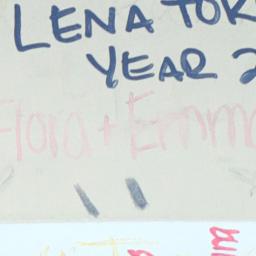 LENA TOR
YEAR 2
Flora + Emma